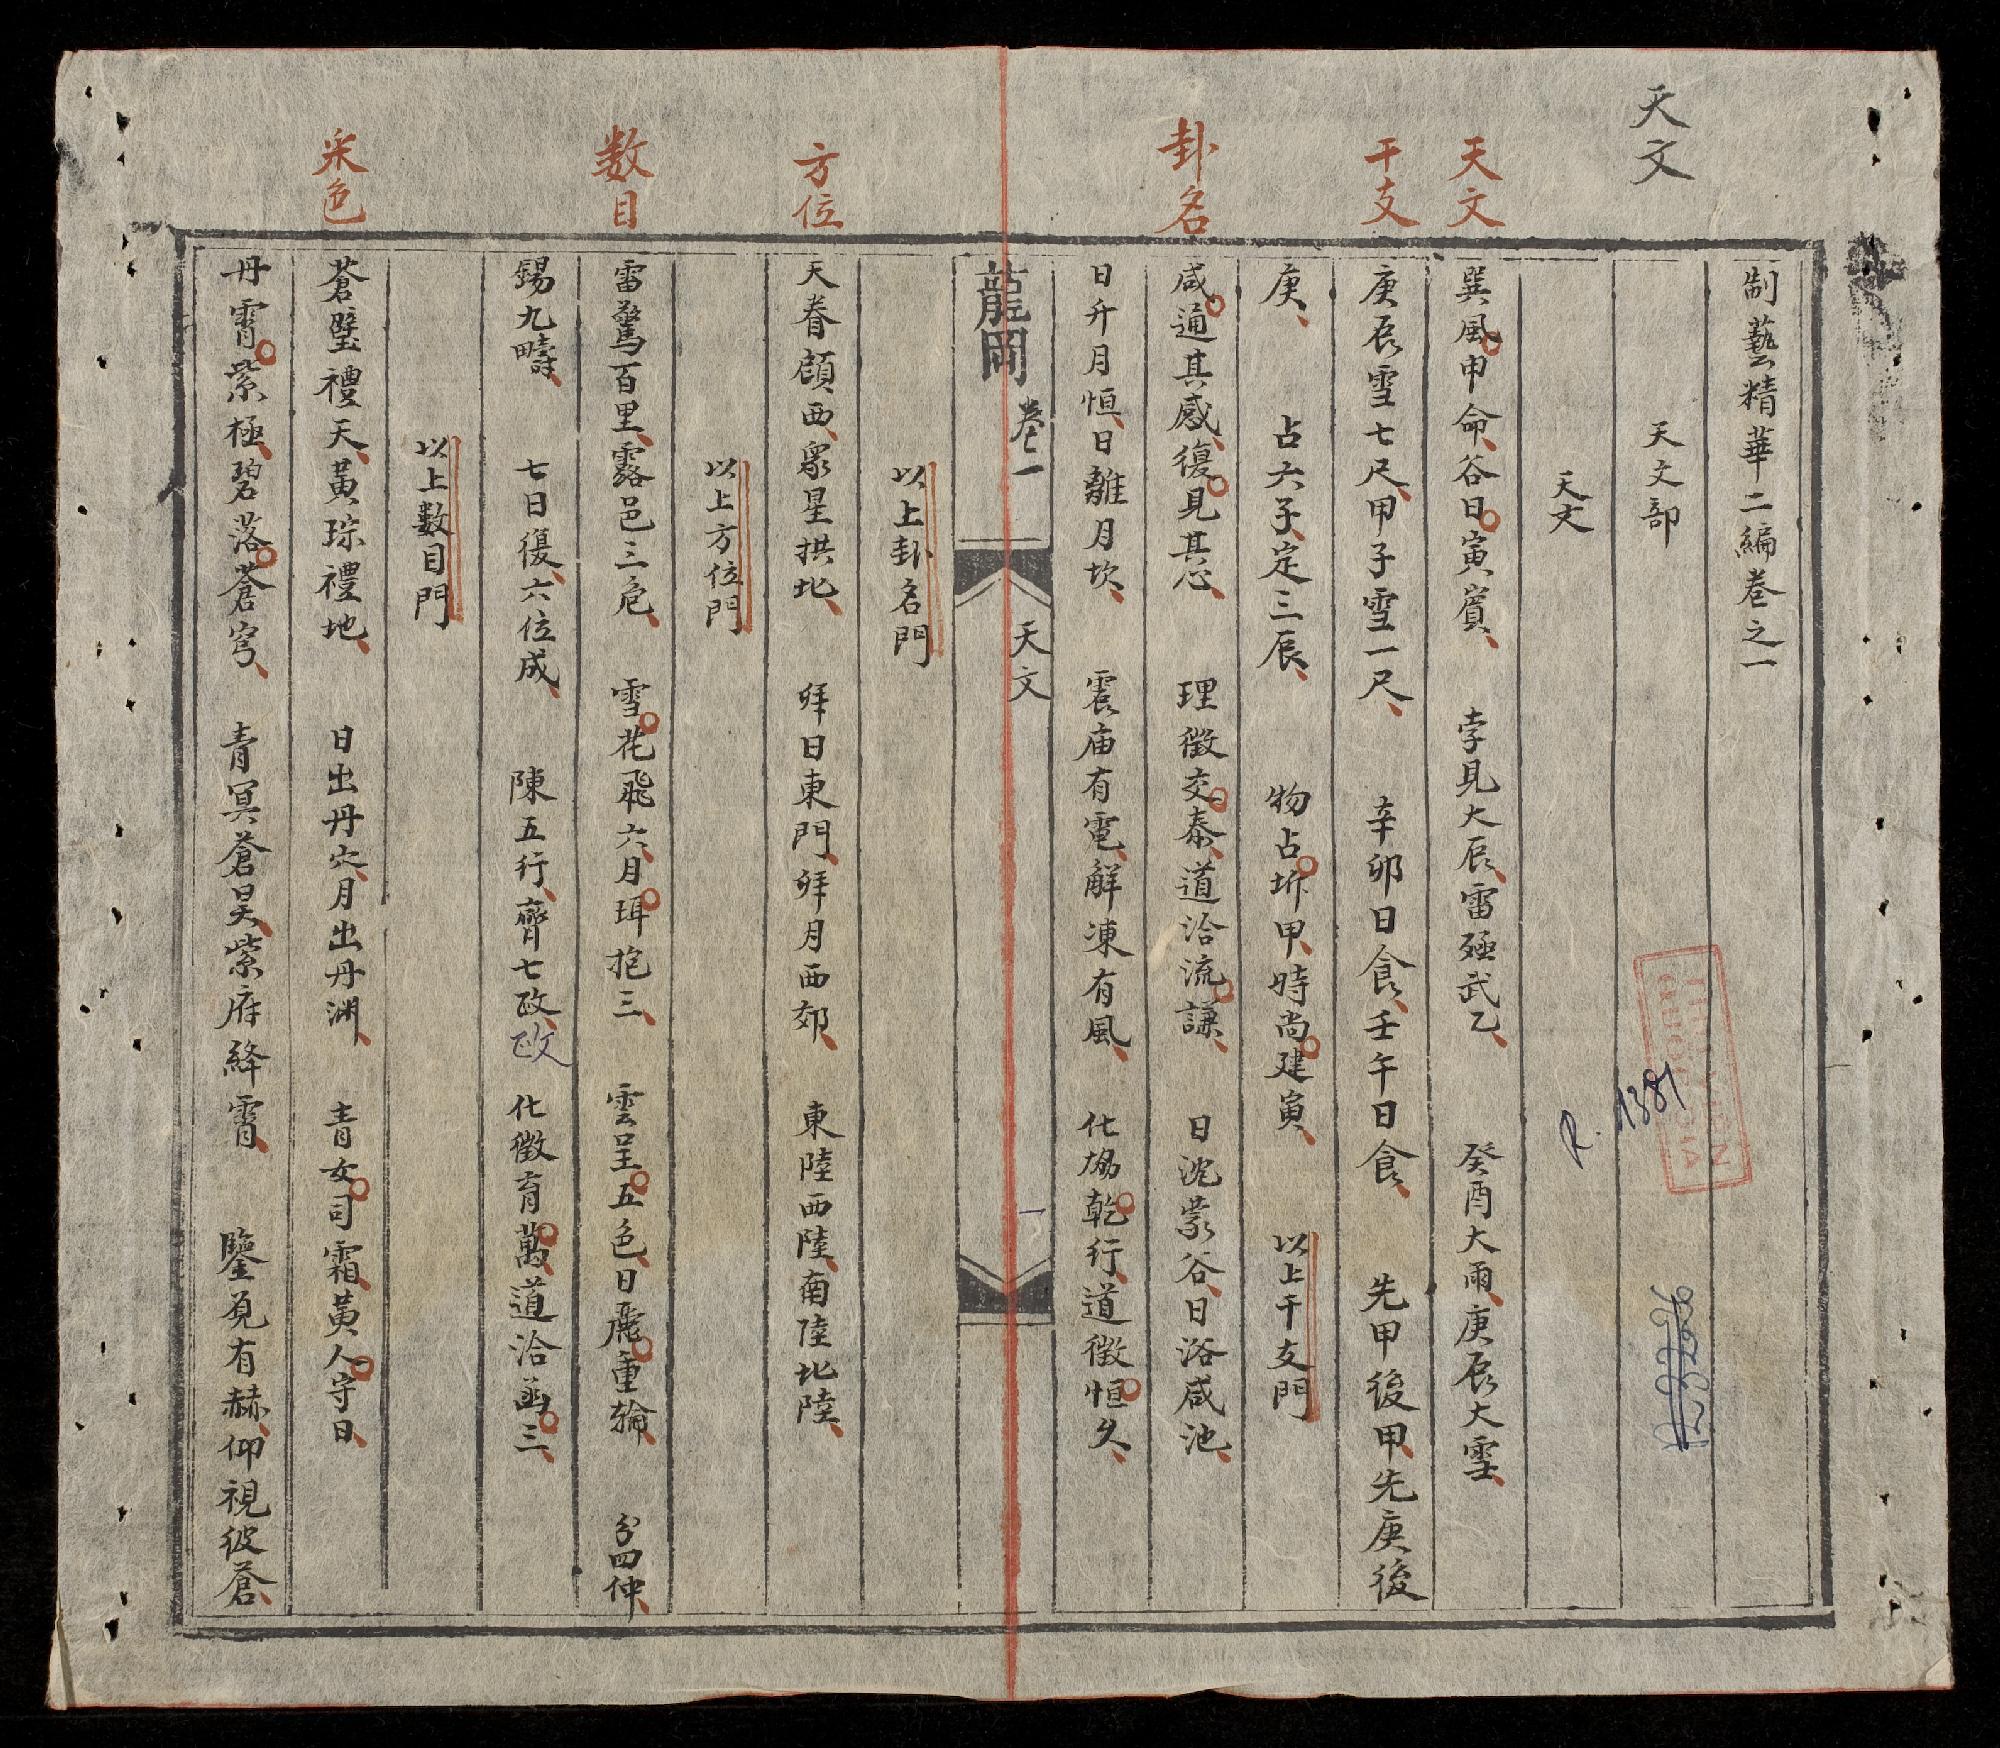 天文
天文
干支
卦名
方位
数目
采色
制藝精華二編卷之一
天文部
天文
巽風申命、谷日寅賓、 孛見大辰、雷殛武乙、 癸酉大雨、庚辰大雪、
庚辰雪七尺、甲子雪一尺、 辛卯日食、壬午日食、 先甲後甲、先庚後
庚、 占六子、定三辰、 物占坼甲、時尚建寅、 以上干支門
咸通其感、復見其心、 理徵交泰、道洽流謙、 日沈蒙谷、日浴咸池、
日升月恒、日離月坎、 震庙有電、解凍有風、 化協乾行、道徵恒久、
以上卦名門
龍岡 卷一 天文 一
天眷顧西、眾星拱北、 拜日東門、拜月西郊、 東陸西陸、南陸北陸、
以上方位門
雷驚百里、露邑三危、 雪花飛六、月珥抱三、 雲呈五色、日麗重輪、 分四仲、
錫九疇、 七日復、六位成、 陳五行、齊七政、政 化徵育萬、道洽函三、
以上數目門
蒼璧禮天、黃琮禮地、 日出丹穴、月出丹渊、 青女司霜、黃人守日、
丹霄紫極、碧落蒼穹、 青冥蒼昊、紫府絳霄、 鑒見有赫、仰視彼蒼、
R. 1381